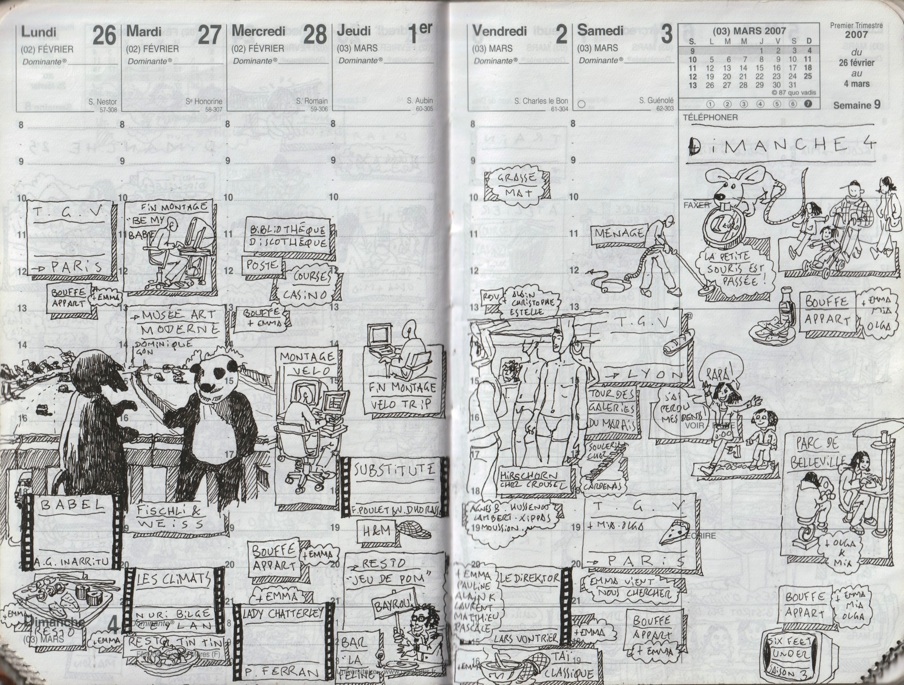 Lundi 26
(02) FÉVRIER
Dominante®
S. Nestor
57-308
8
9
10
T.G.V
11
→ PARIS
12
BOUFFE
APPART
+EMMA
13
14
15
16
17
18
BABEL
A.G. INARRITU
19
20
21
RESTO
Dimanche 4
(03) MARS
Mardi 27
(02) FÉVRIER
Dominante®
Sᵉ Honorine
58-307
8
9
10
FIN MONTAGE
"BE MY
BABE"
11
12
13
→ MUSÉE ART
MODERNE
DOMINIQUE
GON
14
15
16
17
FISCHLI &
WEISS
19
20
LES CLIMATS
NURI BILGE
RESTO TIN TIN
+EMMA
Mercredi 28
(02) FÉVRIER
Dominante®
S. Romain
59-306
8
9
10
11
BIBLIOTHÈQUE
DISCOTHÈQUE
POSTE
COURSES
CASINO
12
BOUFFE
+ EMMA
13
14
MONTAGE
VELO
BOUFFE
APPART
+EMMA
+EMMA
LADY CHATTERLEY
P. FERRAN
Jeudi 1er
(03) MARS
Dominante®
S. Aubin
60-305
8
9
10
11
12
13
FIN MONTAGE
VELO TRIP
SUBSTITUTE
H&M
→ RESTO
"JEU DE POM"
BAYROU!
BAR
"LA
FÉLINE"
Vendredi 2
(03) MARS
Dominante®
S. Charles le Bon
61-304
8
9
GRASSE
MAT
10
11
12
13
RDV
ALAIN
CHRISTOPHE
ESTELLE
HIRSCHORN
CHEZ CROUSEL
AGNES B. - HUSSENOT
LAMBERT - XIPPAS
MOUSSION
+ EMMA
PAULINE
ALAIN K
LAURENT
MATTHIEU
PASCALE
LE DIREKTØR
LARS VON TRIER
+EMMA
TAÏ
CLASSIQUE
Samedi 3
(03) MARS
Dominante®
S. Guénolé
62-303
8
9
10
11
MENAGE
12
T.G.V
→ LYON
TOUR DES
GALERIES
DU MARAIS
T.G.V
+ MIA - OLGA
→ PARIS
EMMA VIENT
NOUS CHERCHER
BOUFFE
APPART
+ EMMA
(03) MARS 2007
S. L M M J V S D
9 1 2 3 4
10 5 6 7 8 9 10 11
11 12 13 14 15 16 17 18
12 19 20 21 22 23 24 25
13 26 27 28 29 30 31
© 87 quo vadis
① ② ③ ④ ⑤ ⑥ ❼
Premier Trimestre
2007
du
26 février
au
4 mars
Semaine 9
TÉLÉPHONER
DIMANCHE 4
FAXER
LA PETITE
SOURIS EST
PASSÉE!
BOUFFE
APPART
+ EMMA
MIA
OLGA
PAPA!
J'AI
PERDU
MES DENTS
VOIR
PARC DE
BELLEVILLE
+ OLGA
&
MIA
ÉCRIRE
BOUFFE
APPART
+ EMMA
MIA
OLGA
SIX FEET
UNDER
SAISON 3